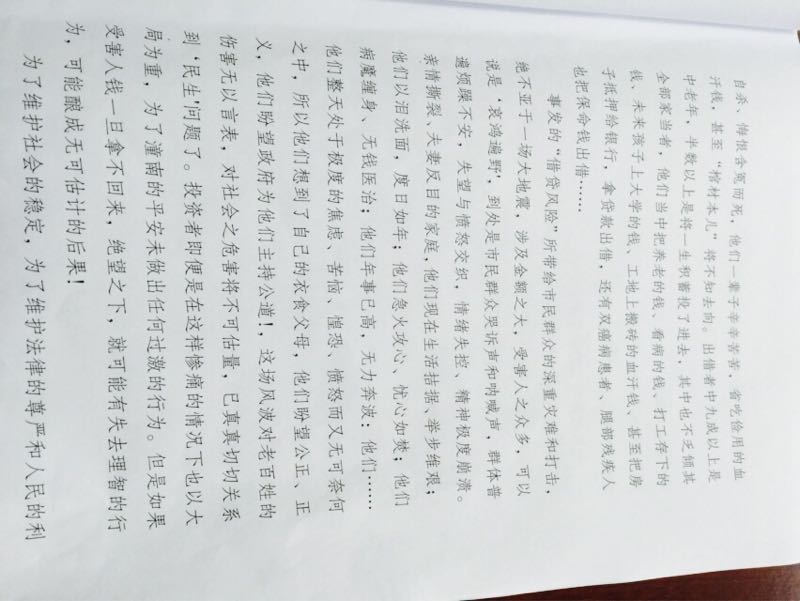 自杀、悔恨含冤而死，他们一辈子辛辛苦苦，省吃俭用的血
汗钱，甚至“棺材本儿”将不知去向。出借者中九成以上是
中老年，半数以上是将一生积蓄投了进去，其中也不乏倾其
全部家当者，他们当中把养老的钱、看病的钱、打工存下的
钱、未来孩子上大学的钱、工地上搬砖的血汗钱、甚至把房
子抵押给银行，拿贷款出借，还有双癌病患者、腿部残疾人
也把保命钱出借……
事发的“借贷风险”所带给市民群众的深重灾难和打击，
绝不亚于一场大地震，涉及金额之大，受害人之众多，可以
说是‘哀鸿遍野’，到处是市民群众哭诉声和呐喊声，群体普
遍烦躁不安，失望与愤怒交织，情绪失控、精神极度崩溃。
亲情撕裂、夫妻反目的家庭，他们现在生活拮据、举步维艰；
他们以泪洗面，度日如年；他们急火攻心、忧心如焚；他们
病魔缠身、无钱医治；他们年事已高，无力奔波；他们……
他们整天处于极度的焦虑、苦恼、惶恐、愤怒而又无可奈何
之中，所以他们想到了自己的衣食父母，他们盼望公正、正
义，他们盼望政府为他们主持公道！，这场风波对老百姓的
伤害无以言表，对社会之危害将不可估量，已真真切切关系
到‘民生’问题了。投资者即便是在这样惨痛的情况下也以大
局为重，为了潼南的平安未做出任何过激的行为。但是如果
受害人钱一旦拿不回来，绝望之下，就可能有失去理智的行
为，可能酿成无可估计的后果！
为了维护社会的稳定，为了维护法律的尊严和人民的利